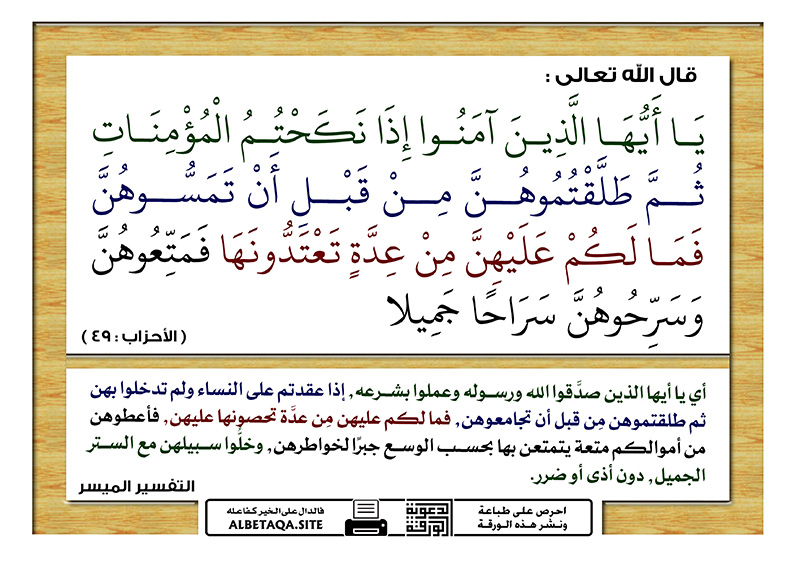 قال الله تعالى :
يَا أَيُّهَا الَّذِينَ آمَنُوا إِذَا نَكَحْتُمُ الْمُؤْمِنَاتِ
ثُمَّ طَلَّقْتُمُوهُنَّ مِنْ قَبْلِ أَنْ تَمَسُّوهُنَّ
فَمَا لَكُمْ عَلَيْهِنَّ مِنْ عِدَّةٍ تَعْتَدُّونَهَا فَمَتِّعُوهُنَّ
وَسَرِّحُوهُنَّ سَرَاحًا جَمِيلا
( الأحزاب : ٤٩ )
أي يا أيها الذين صدَّقوا الله ورسوله وعملوا بشرعه, إذا عقدتم على النساء ولم تدخلوا بهن
ثم طلقتموهن مِن قبل أن تجامعوهن, فما لكم عليهن مِن عدَّة تحصونها عليهن, فأعطوهن
من أموالكم متعة يتمتعن بها بحسب الوسع جبرًا لخواطرهن, وخلُّوا سبيلهن مع الستر
الجميل, دون أذى أو ضرر.
التفسير الميسر
احرص على طباعة
ونشر هذه الورقة
الدعوية
الورقة
فالدال على الخير كفاعله
ALBETAQA.SITE